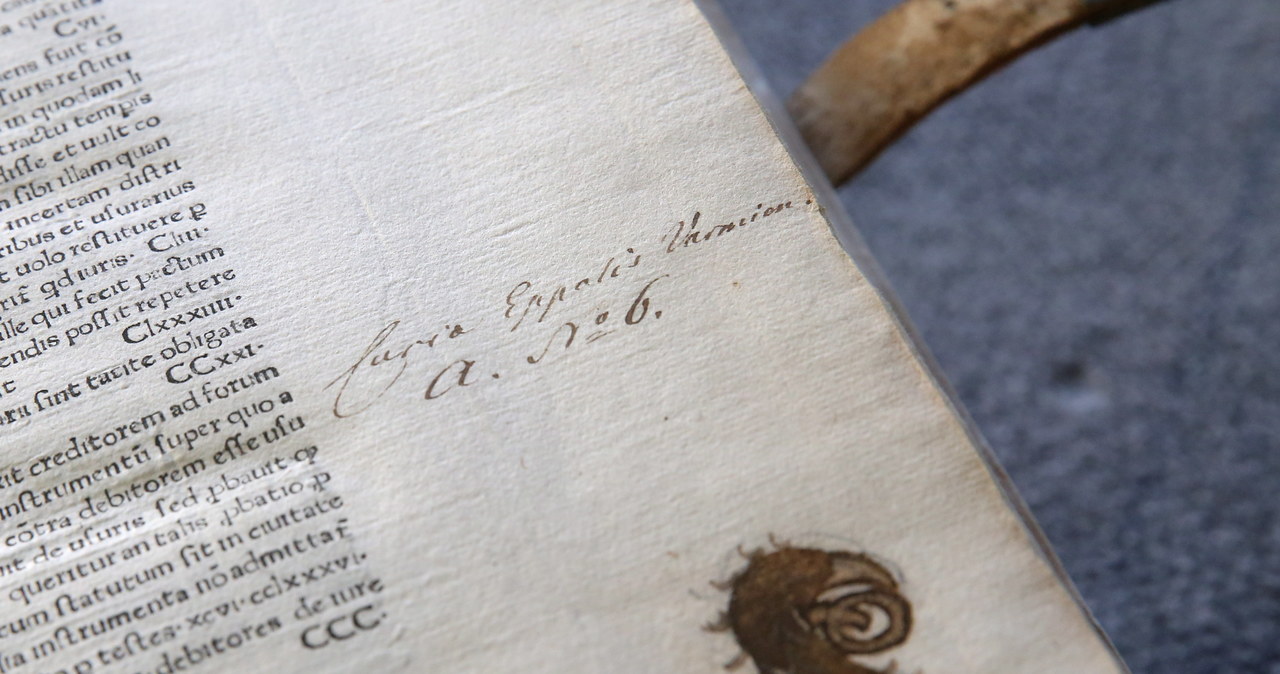 Cvi.
ens fuit cō
iuris restitu
in quodam li
tractu tempis
disse et uult co
n sibi illam quan
incertam distri
ribus et usurarius
t uolo restituere ꝑ
qd iuris. Cliii.
ille qui fecit pactum
endis possit repetere
t Clxxxiiii.
sint tacite obligata
CCxxi.
xit creditorem ad forum
instrumentū super quo a
cōtra debitorem esse usu
nt de usuris sed ꝓbauit
queritur an talis ꝓbatio ꝓ
cum statutum sit in ciuitate
instrumenta nō admittat̄
testes. xcvi. cclxxxvi.
debitores de iure
CCC.
Curia Eppalis Varmien.
a. Nº 6.